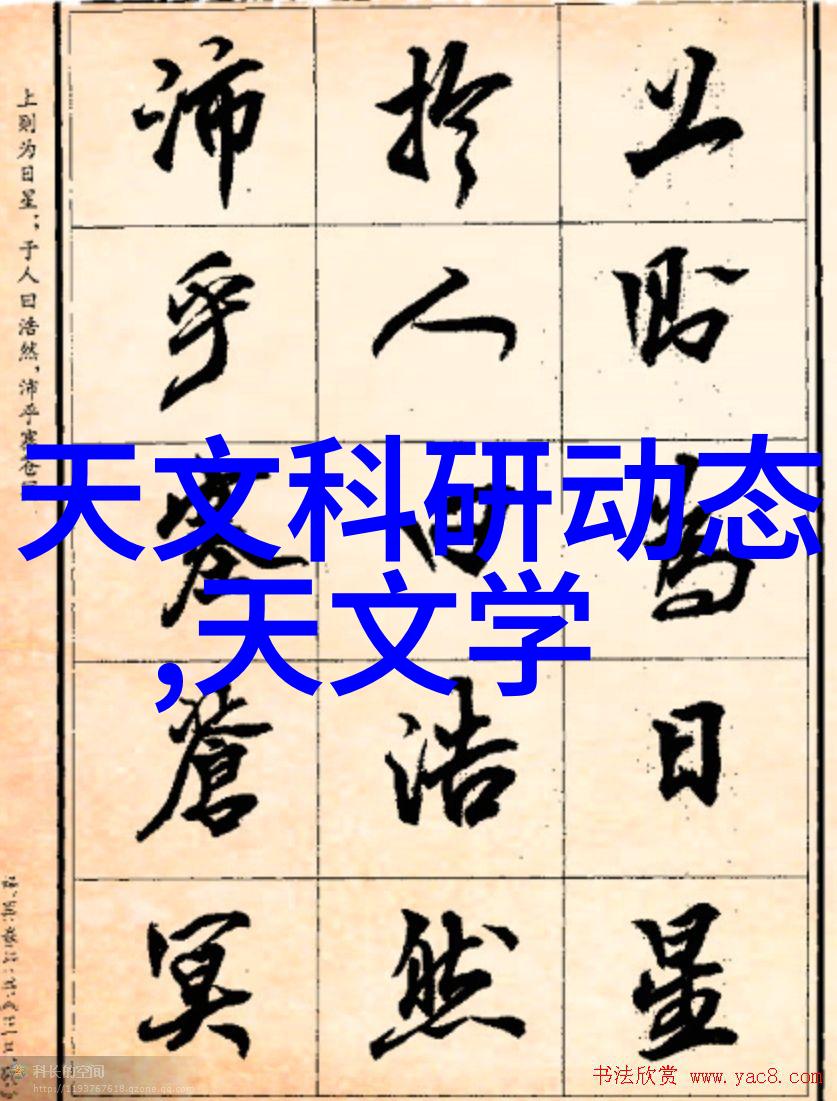 天文科研动态
,天文学
上則為日星
於人曰浩然
沛乎塞蒼冥
上则为日星;于人曰浩然,沛乎塞
科长的空间
http://1193767618.qzone.qq.com
书法欣赏 www.yac8.com